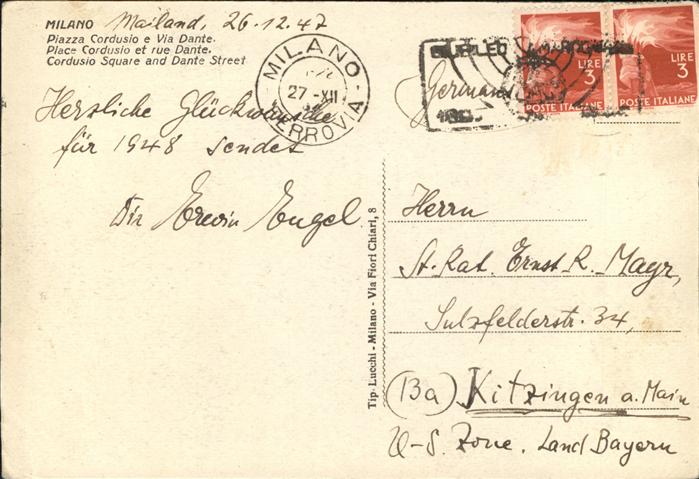 MILANO Mailand, 26.12.47
Piazza Cordusio e Via Dante.
Place Cordusio et rue Dante.
Cordusio Square and Dante Street
Herzliche Glückwünsche
für 1948 sendet
Dir Erwin Engel
MILANO
27-XII
FERROVIA
LIRE
3
POSTE ITALIANE
LIRE
3
POSTE ITALIANE
Germania
Tip. Lucchi - Milano - Via Fiori Chiari, 8
Herrn
St. Rat. Ernst R. Mayr,
Sulzfelderstr. 34,
(13a) Kitzingen a. Main
U-S. Zone. Land Bayern